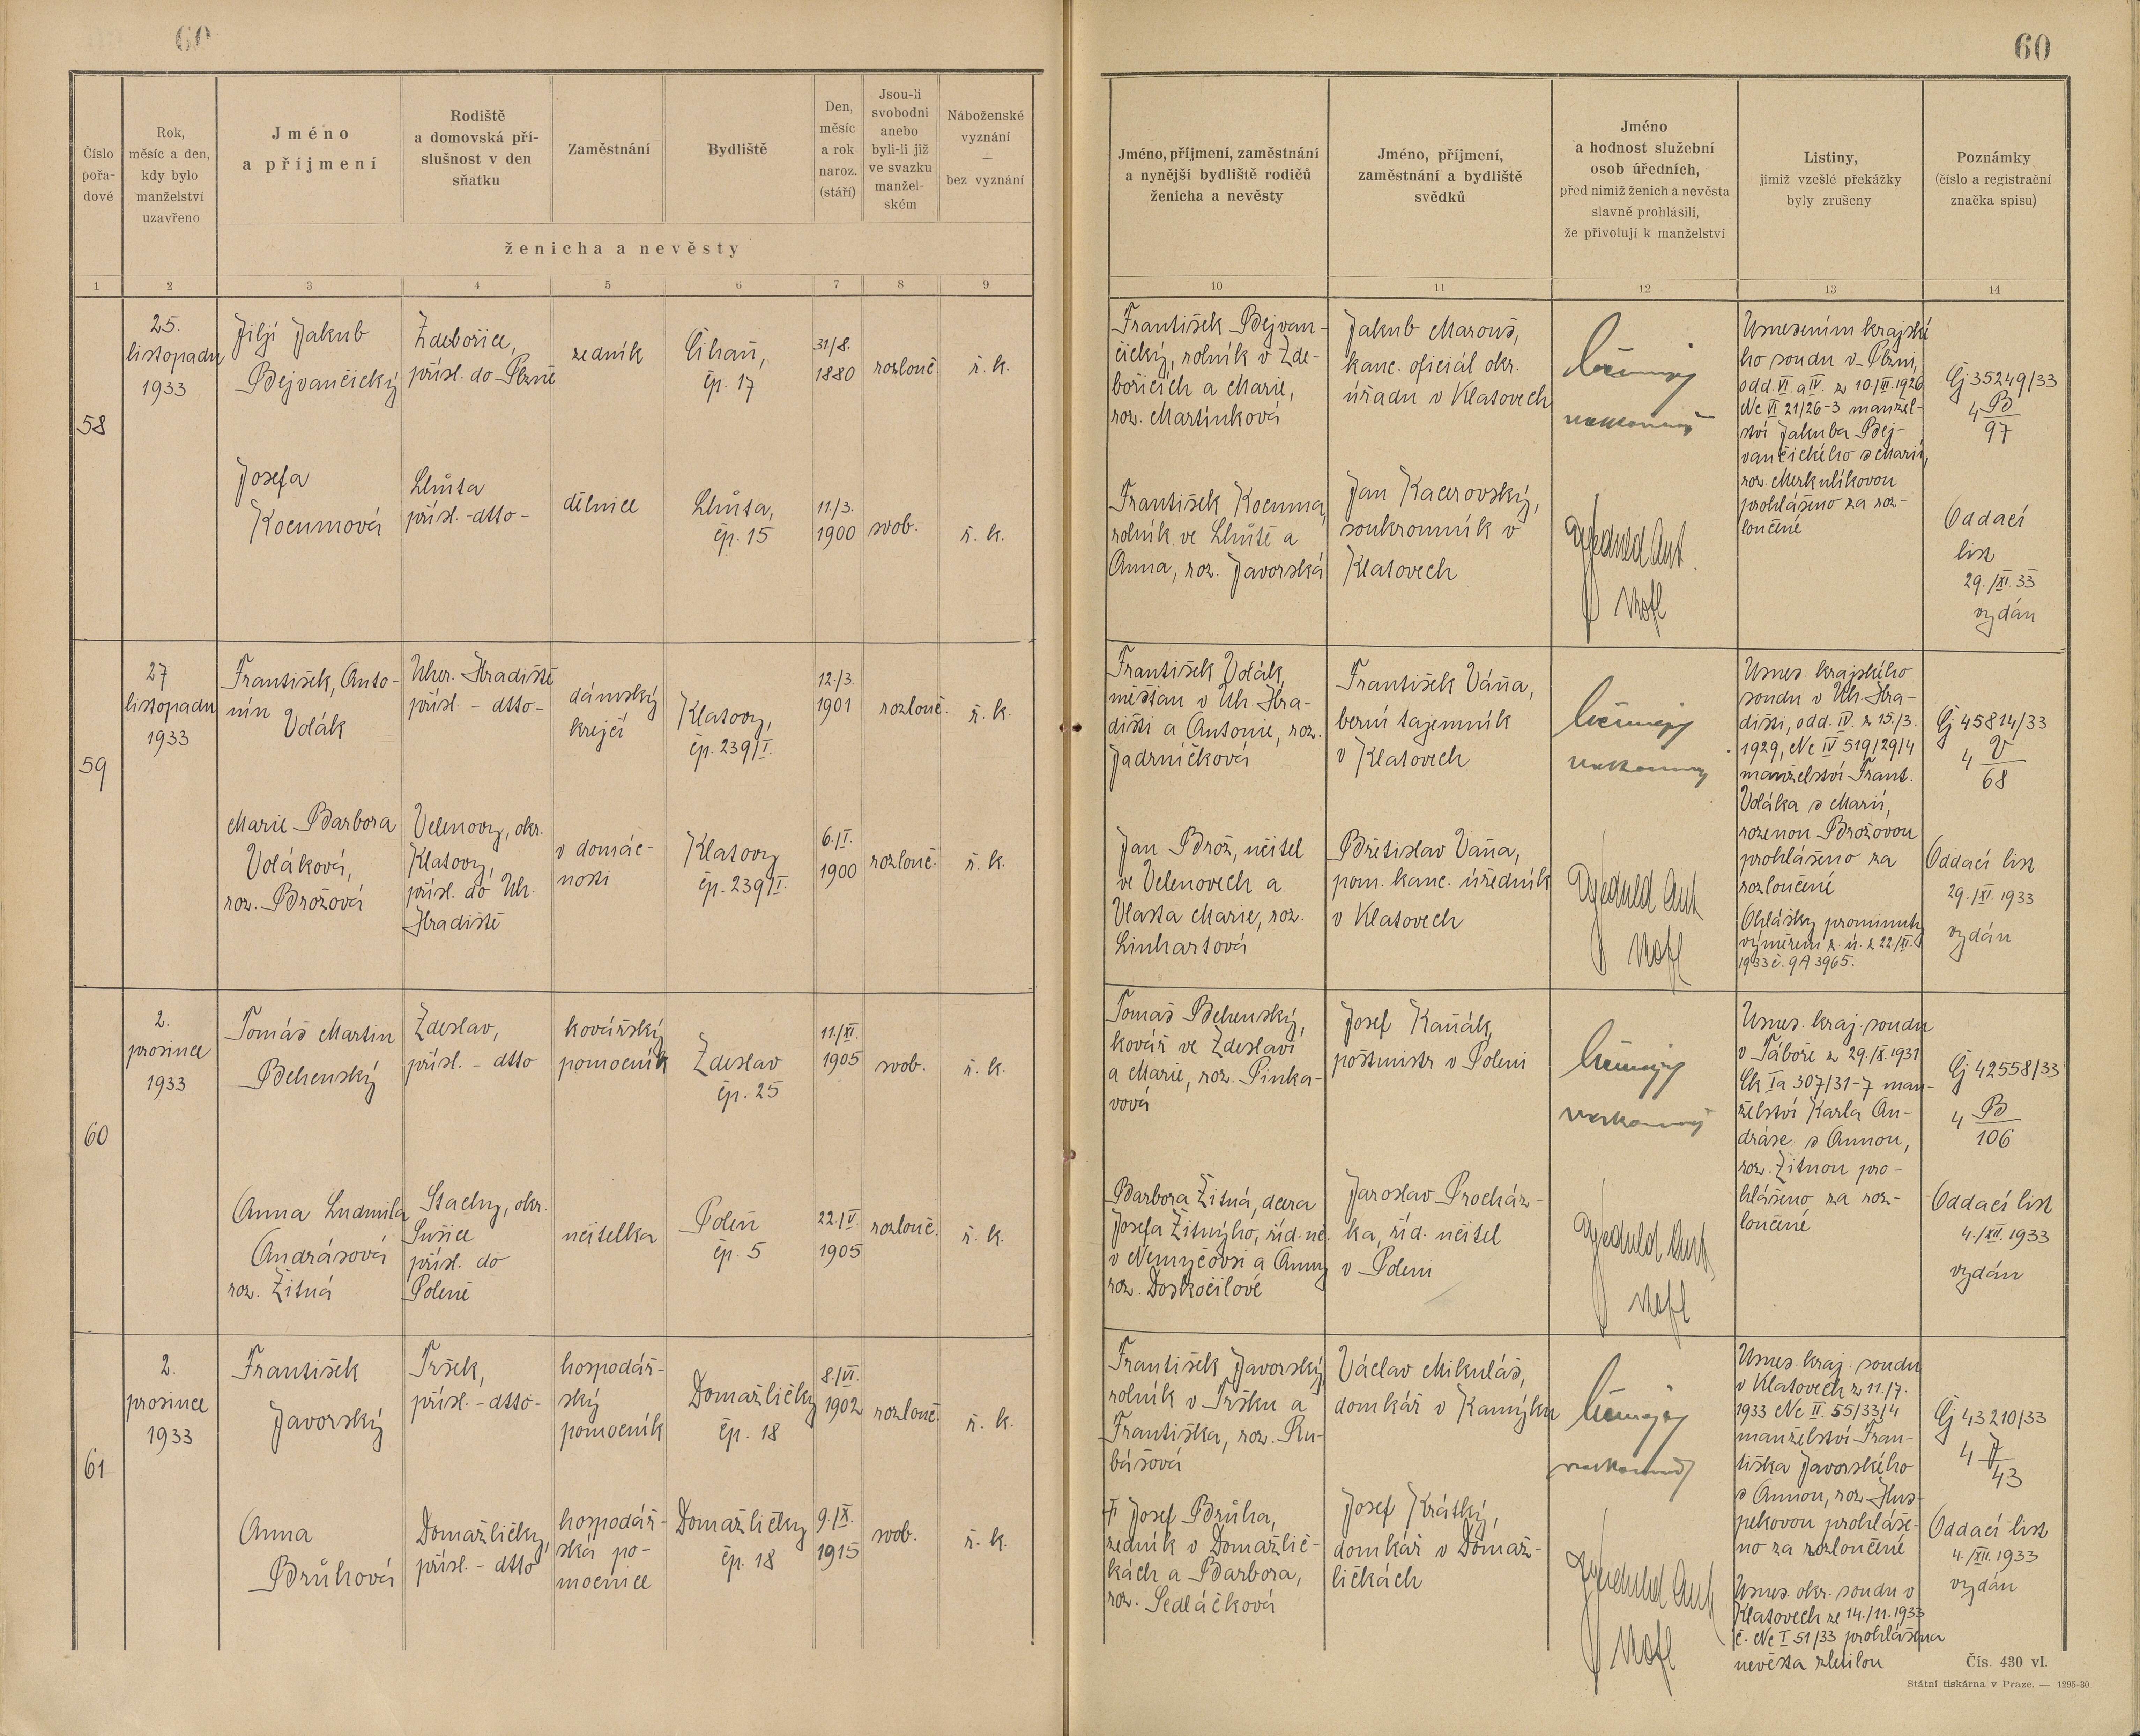 60
60
Číslo pořa- dové
Rok, měsíc a den, kdy bylo manželství uzavřeno
Jméno a příjmení
Rodiště a domovská pří- slušnost v den sňatku
Zaměstnání
Bydliště
Den, měsíc a rok naroz. (stáří)
Jsou-li svobodni anebo byli-li již ve svazku manžel- ském
Náboženské vyznání — bez vyznání
ženicha a nevěsty
Jméno, příjmení, zaměstnání a nynější bydliště rodičů ženicha a nevěsty
Jméno, příjmení, zaměstnání a bydliště svědků
Jméno a hodnost služební osob úředních, před nimiž ženich a nevěsta slavně prohlásili, že přivolují k manželství
Listiny, jimiž vzešlé překážky byly zrušeny
Poznámky (číslo a registrační značka spisu)
1 2 3 4 5 6 7 8 9 10 11 12 13 14
58
25.
listopadu
1933
Jiljí Jakub
Bejvančický
Zdebořice,
přísl. do Plzně
zedník
Číhaň,
čp. 17
31/8.
1880
rozlouč.
ř. k.
František Bejvan-
čický, rolník v Zde-
bořicích a Marie,
roz. Martínková
Jakub Marouš,
kanc. oficiál okr.
úřadu v Klatovech
Usnesením krajské
ho soudu v Plzni,
odd. VI. a IV. z 10./III. 1926
Nc VI 21/26-3 manžel-
ství Jakuba Bej-
vančického s Marií,
roz. Merkulíkovou
prohlášeno za roz-
loučené
Čj 35249/33
4 B
97
Josefa
Kocumová
Lhůta
přísl. -dtto-
dělnice
Lhůta,
čp. 15
11./3.
1900
svob.
ř. k.
František Kocuma,
rolník ve Lhůtě a
Anna, roz. Javorská
Jan Kacerovský,
soukromník v
Klatovech
Oddací
list
29./XI. 33
vydán
59
27
listopadu
1933
František, Anto-
nín Volák
Uher. Hradiště
přísl. - dtto-
dámský
krejčí
Klatovy,
čp. 239/I.
12./3.
1901
rozlouč.
ř. k.
František Volák,
měšťan v Uh. Hra-
dišti a Antonie, roz.
Jadrníčková
František Váňa,
berní tajemník
v Klatovech
Usnes. krajského
soudu v Uh. Hra-
dišti, odd. IV. z 15./3.
1929, Nc IV 519/29/4
manželství Frant.
Voláka s Marií,
rozenou Brožovou
prohlášeno za
rozloučené
Ohlášky prominuty
výměrem z. ú. z 22./XI.
1933 č. 9A 3965.
Čj 45814/33
4 V
68
Marie Barbora
Voláková,
roz. Brožová
Velenovy, okr.
Klatovy,
přísl. do Uh.
Hradiště
v domác-
nosti
Klatovy
čp. 239/I.
6./I.
1900
rozlouč.
ř. k.
Jan Brož, učitel
ve Velenovech a
Vlasta Marie, roz.
Linhartová
Břetislav Váňa,
pom. kanc. úředník
v Klatovech
Oddací list
29./XI. 1933
vydán
60
2.
prosince
1933
Tomáš Martin
Behenský
Zdeslav,
přísl. - dtto
kovářský
pomocník
Zdeslav
čp. 25
11./XI.
1905
svob.
ř. k.
Tomáš Behenský,
kovář ve Zdeslavi
a Marie, roz. Pinka-
vová
Josef Kaňák,
poštmistr v Poleni
Usnes. kraj. soudu
v Táboře z 29./X. 1931
Ck Ia 307/31-7 man-
želství Karla An-
dráse s Annou,
roz. Žitnou pro-
hlášeno za roz-
loučené
Čj 42558/33
4 B
106
Anna Ludmila
Andrásová
roz. Žitná
Stachy, okr.
Sušice
přísl. do
Poleně
učitelka
Poleň
čp. 5
22./V.
1905
rozlouč.
ř. k.
Barbora Žitná, dcera
Josefa Žitnýho, říd. uč.
v Nemyčovsi a Anny
roz. Doskočilové
Jaroslav Procház-
ka, říd. učitel
v Poleni
Oddací list
4./XII. 1933
vydán
61
2.
prosince
1933
František
Javorský
Tršek,
přísl. - dtto-
hospodář-
ský
pomocník
Domažličky
čp. 18
8./VI.
1902
rozlouč.
ř. k.
František Javorský,
rolník v Tršku a
Františka, roz. Ru-
bášová
Václav Mikuláš,
domkář v Kamýku
Usnes. kraj. soudu
v Klatovech z 11./7.
1933 Nc II. 55/33/4
manželství Fran-
tiška Javorského
s Annou, roz. Hus-
pekovou prohláše-
no za rozloučené
Usnes. okr. soudu v
Klatovech ze 14./11. 1933
č. Nc I 51/33 prohlášena
nevěsta zletilou
Čj 43210/33
4 J
43
Anna
Brůhová
Domažličky,
přísl. - dtto
hospodář-
ská po-
mocnice
Domažličky
čp. 18
9./X.
1915
svob.
ř. k.
† Josef Brůha,
zedník v Domažlič-
kách a Barbora,
roz. Sedláčková
Josef Krátký,
domkář v Domaž-
ličkách
Oddací list
4./XII. 1933
vydán
Čís. 430 vl.
Státní tiskárna v Praze. — 1295-30.